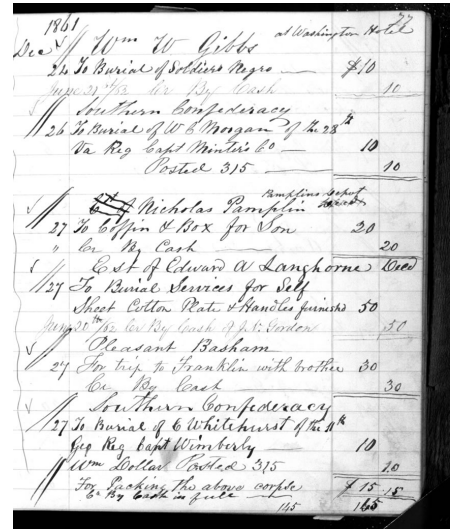 77
1861
at Washington Hotel
Dec Wm W Gibbs
24 To Burial of Soldiers Negro $10
June 21st/62 Cr By Cash 10
Southern Confederacy
26 To Burial of W C Morgan of the 28th
Va Reg Capt Minter's Co 10
Posted 315 10
Pamplins Depot
Nicholas Pamplin
27 To Coffin & Box for Son 20
" Cr By Cash 20
Est of Edward A Langhorne Decd
27 To Burial Services for Self
Sheet Cotton Plate & Handles furnishd 50
June 20th/62 Cr By Cash of J. Gordon 50
Pleasant Basham
27 For trip to Franklin with brother 30
Cr By Cash 30
Southern Confederacy
27 To Burial of C Whitehurst of the 11th
Geo Reg Capt Wimberly 10
Wm Dollar Posted 315 10
For Packing the above corpse $15
Cr By Cash in full 15
145 165